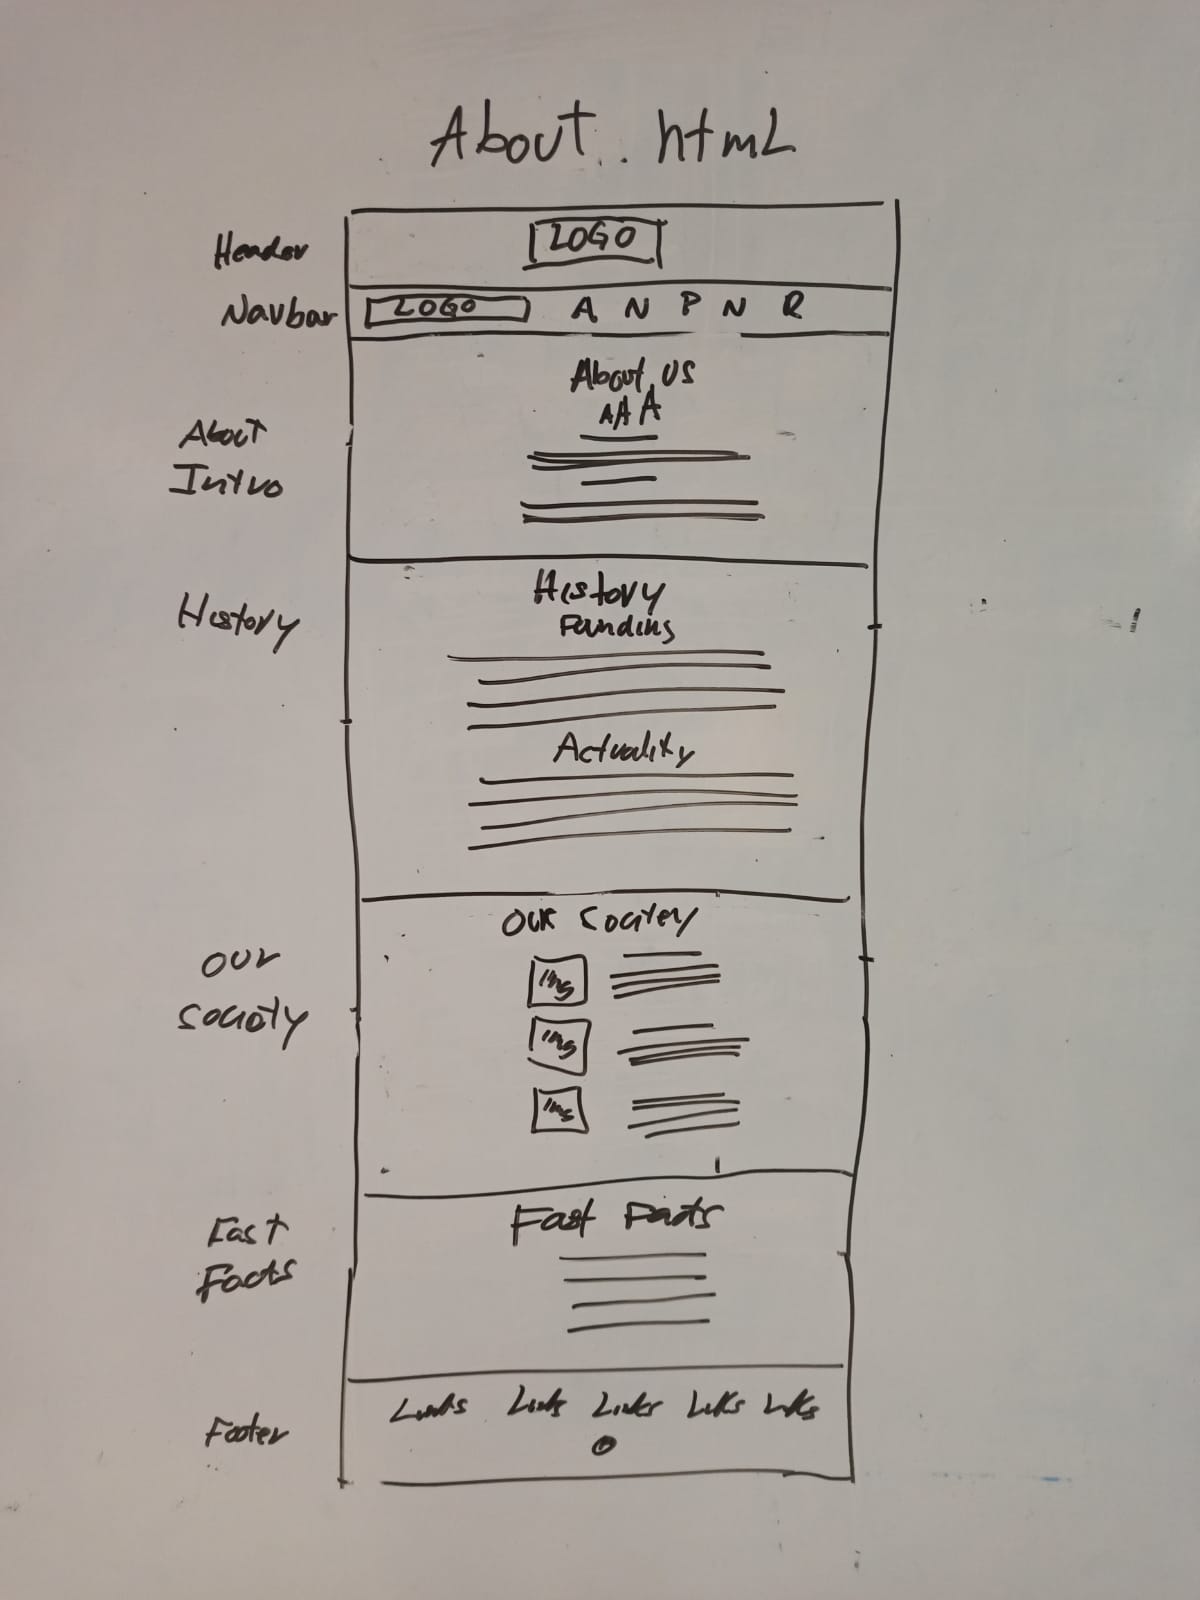 About.html
Header
LOGO
Navbar
LOGO A N P N R
About Us
AAA
About
Intro
History
History
Funding
Actuality
Our Society
Our
Society
Img
Img
Img
Fast Facts
Fast
Facts
Links Links Links Links Links
Footer